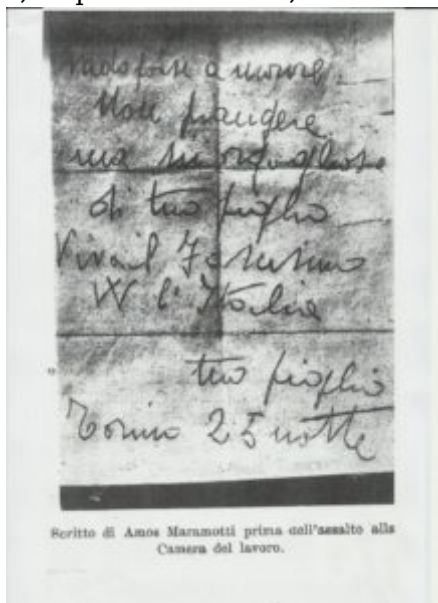 Vado forse a morire.
Non piangere
ma sii orgogliosa
di tuo figlio
Viva il Fascismo
W l'Italia
tuo figlio
Torino 25 notte
Scritto di Amos Maramotti prima dell'assalto alla
Camera del lavoro.